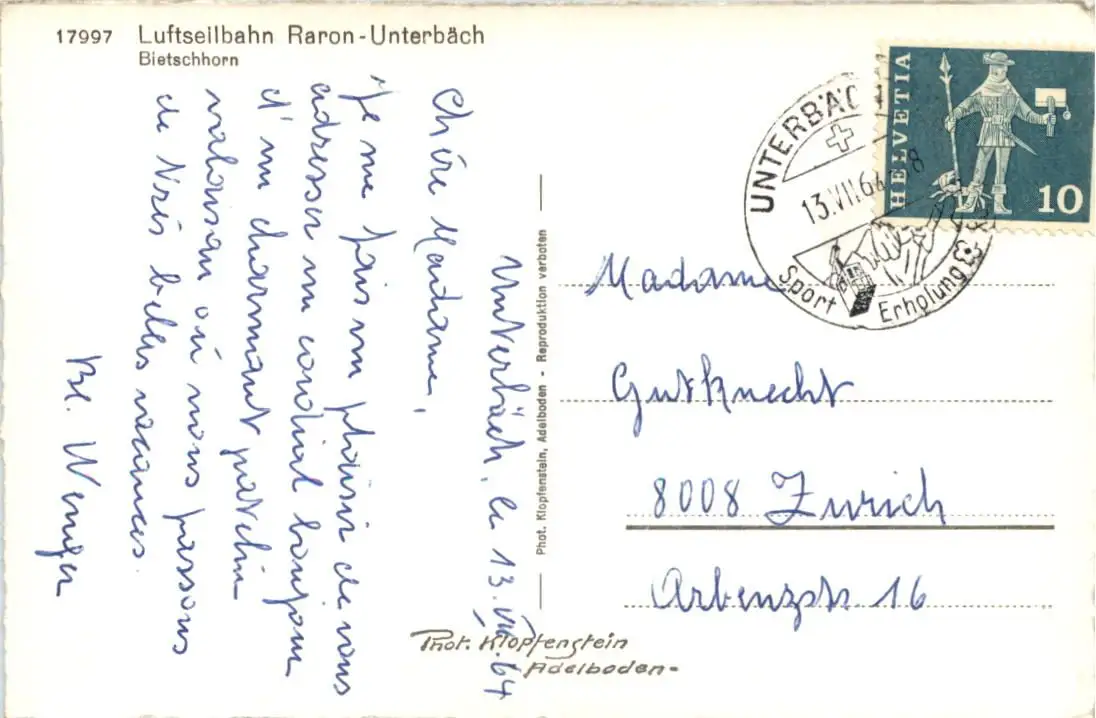 17997 Luftseilbahn Raron-Unterbäch
Bietschhorn
HELVETIA
10
UNTERBÄCH
13.VII.64
Sport Erholung
Unterbäch, le 13.VII.64
Chère Madame,
Je me fais un plaisir de vous
adresser un cordial bonjour
d'un charmant patelin
valaisan où nous passons
de très belles vacances.
Bl. Wenger
Phot. Klopfenstein, Adelboden - Reproduktion verboten
Madame
Gutknecht
8008 Zürich
Arbenzstr. 16
Phot. Klopfenstein
Adelboden-